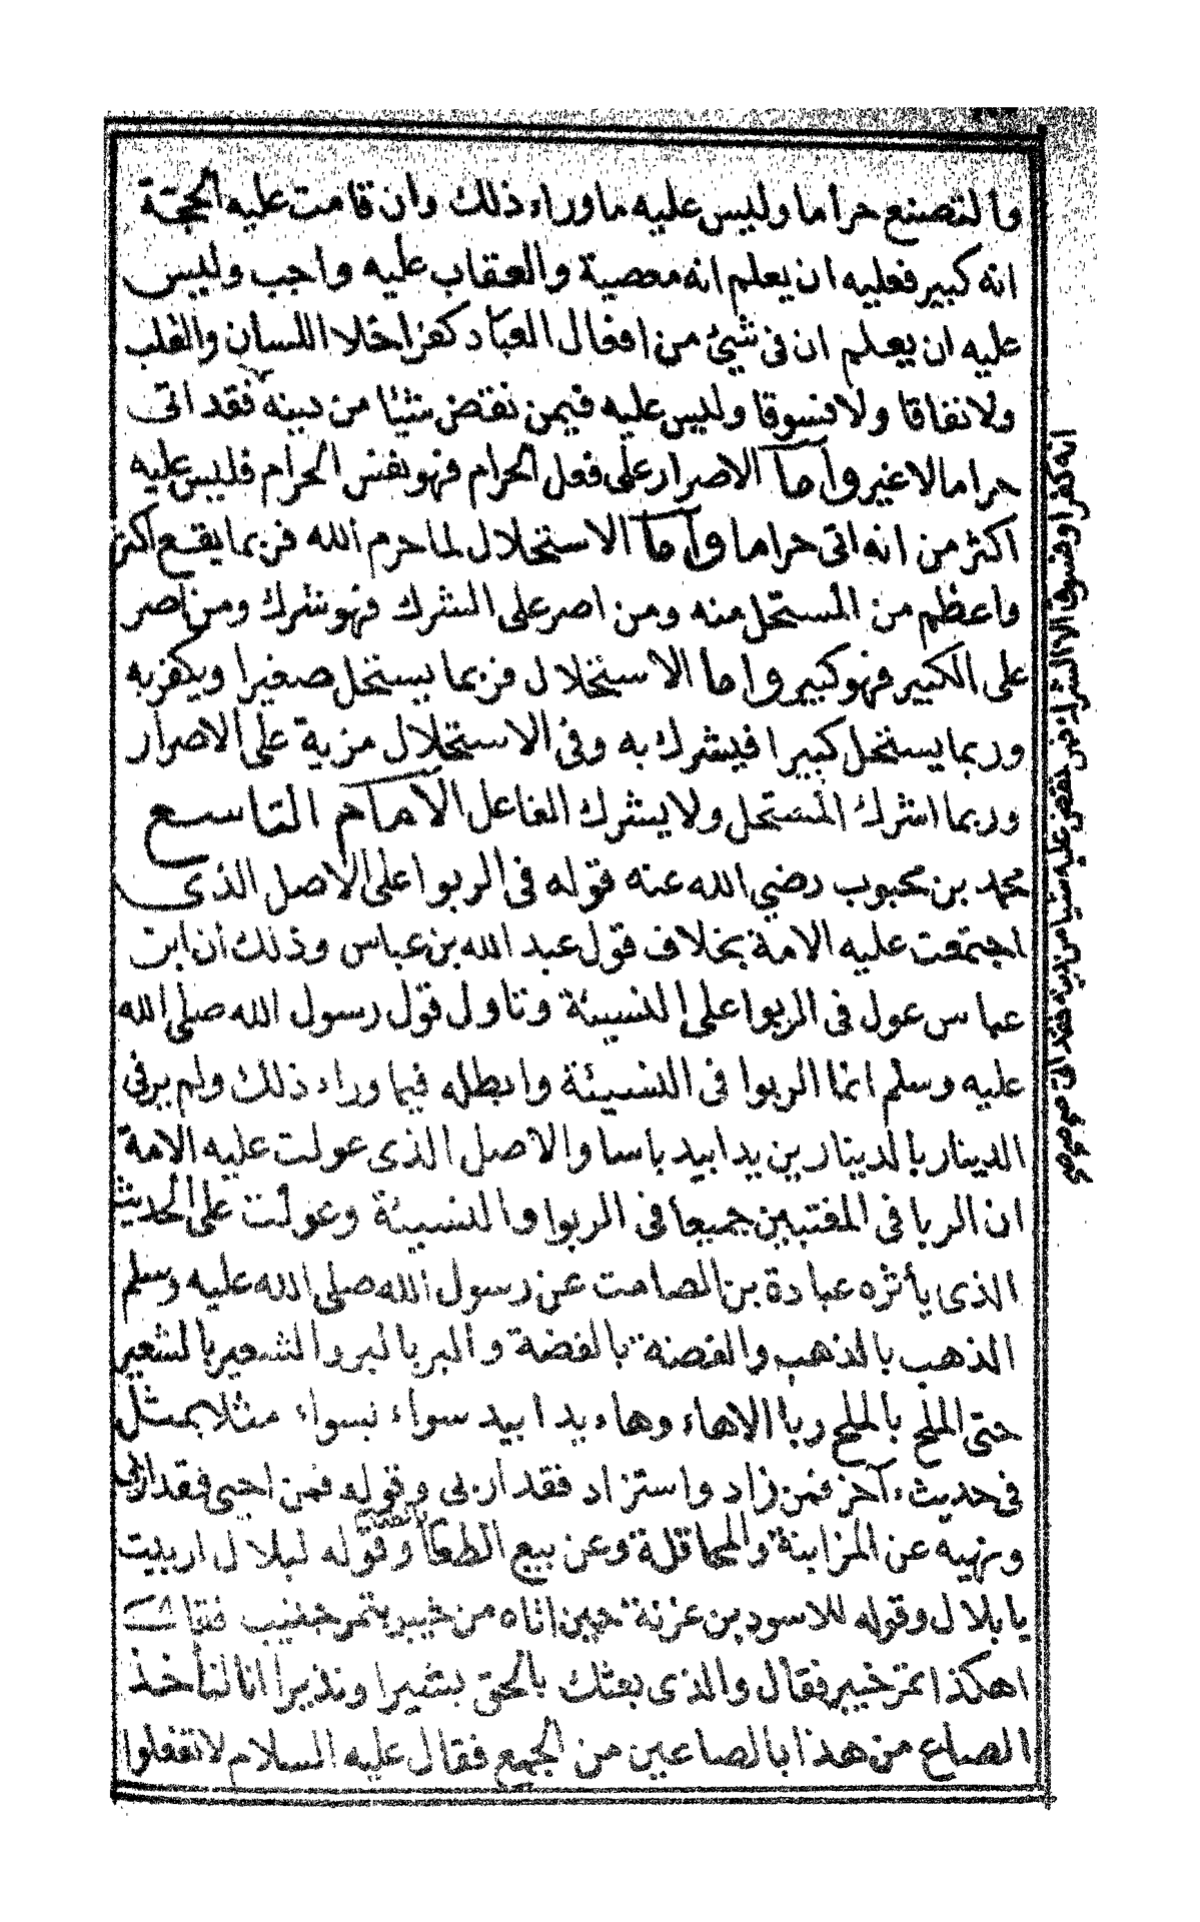 والتصنع حراما وليس عليه ما وراء ذلك وان قامت عليه الحجة
انه كبير فعليه ان يعلم انه معصية والعقاب عليه واجب وليس
عليه ان يعلم ان فى شيئ من افعال العباد كفرا خلا اللسان والقلب
ولا نفاقا ولا فسوقا وليس عليه فيمن نقض شيئا من دينه فقد اتى
حراما لا غير واما الاصرار على فعل الحرام فهو نفس الحرام فليس عليه
اكثر من انه اتى حراما واما الاستحلال لما حرم الله فربما يقع اكثر
واعظم من المستحل منه ومن اصر على الشرك فهو شرك ومن اصر
على الكبير فهو كبير واما الاستحلال فربما يستحل صغيرا ويكفر به
وربما يستحل كبيرا فيشرك به وفى الاستحلال مزية على الاصرار
وربما اشرك المستحل ولا يشرك الفاعل الامام التاسع
محمد بن محبوب رضي الله عنه قوله فى الربوا على الاصل الذى
اجتمعت عليه الامة بخلاف قول عبد الله بن عباس وذلك أن ابن
عباس عول فى الربوا على النسيئة وتاول قول رسول الله صلى الله
عليه وسلم انما الربوا فى النسيئة وابطله فيما وراء ذلك ولم ير فى
الدينار بالدينارين يدا بيد باسا والاصل الذى عولت عليه الامة
ان الربا فى المعنيين جميعا فى الربوا والنسيئة وعولت على الحديث
الذى يأثره عبادة بن الصامت عن رسول الله صلى الله عليه وسلم
الذهب بالذهب والفضة بالفضة والبر بالبر والشعير بالشعير
حتى الملح بالملح ربا الا هاء وهاء يدا بيد سواء بسواء مثلا بمثل
فى حديث آخر فمن زاد واستزاد فقد اربى وقوله فمن اجبى فقد اربى
ونهيه عن المزابنة والمحاقلة وعن بيع الطعام وقوله لبلال اربيت
يا بلال وقوله للاسود بن عزية حين اتاه من خيبر بتمر جنيب فقال
اهكذا تمر خيبر فقال والذى بعثك بالحق بشيرا ونذيرا انا لنأخذ
الصاع من هذا بالصاعين من الجمع فقال عليه السلام لا تفعلوا
انه كفر او فسوق الا الشرك فمن نقض عليه شيا من دينه فقد اتى